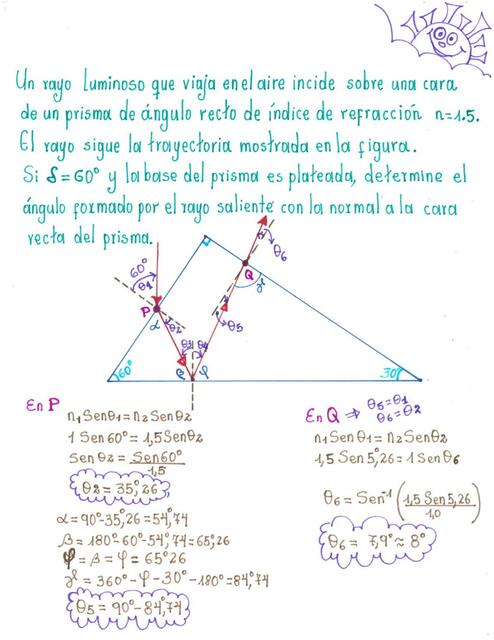 Un rayo Luminoso que viaja en el aire incide sobre una cara
de un prisma de ángulo recto de índice de refracción n=1.5.
El rayo sigue la trayectoria mostrada en la figura.
Si δ=60° y la base del prisma es plateada, determine el
ángulo formado por el rayo saliente con la normal a la cara
recta del prisma.
60°
θ1
θ6
P
Q
α
θ2
γ
θ5
θ3
θ4
60°
β
φ
30°
En P
n1Senθ1=n2Senθ2
1 Sen60°=1,5Senθ2
Senθ2=Sen60°
1,5
θ2=35°,26
α=90°-35°,26=54°,74
β=180°-60°-54°,74=65°,26
φ=β=φ=65°26
γ=360°-φ-30°-180°=84°,74
θ5=90°-84°,74
En Q ⇒ θ5=θ1
θ6=θ2
n1Senθ1=n2Senθ2
1,5 Sen5°,26=1Senθ6
θ6=Sen⁻¹(1,5 Sen5,26
1,0)
θ6= 7,9°≈8°